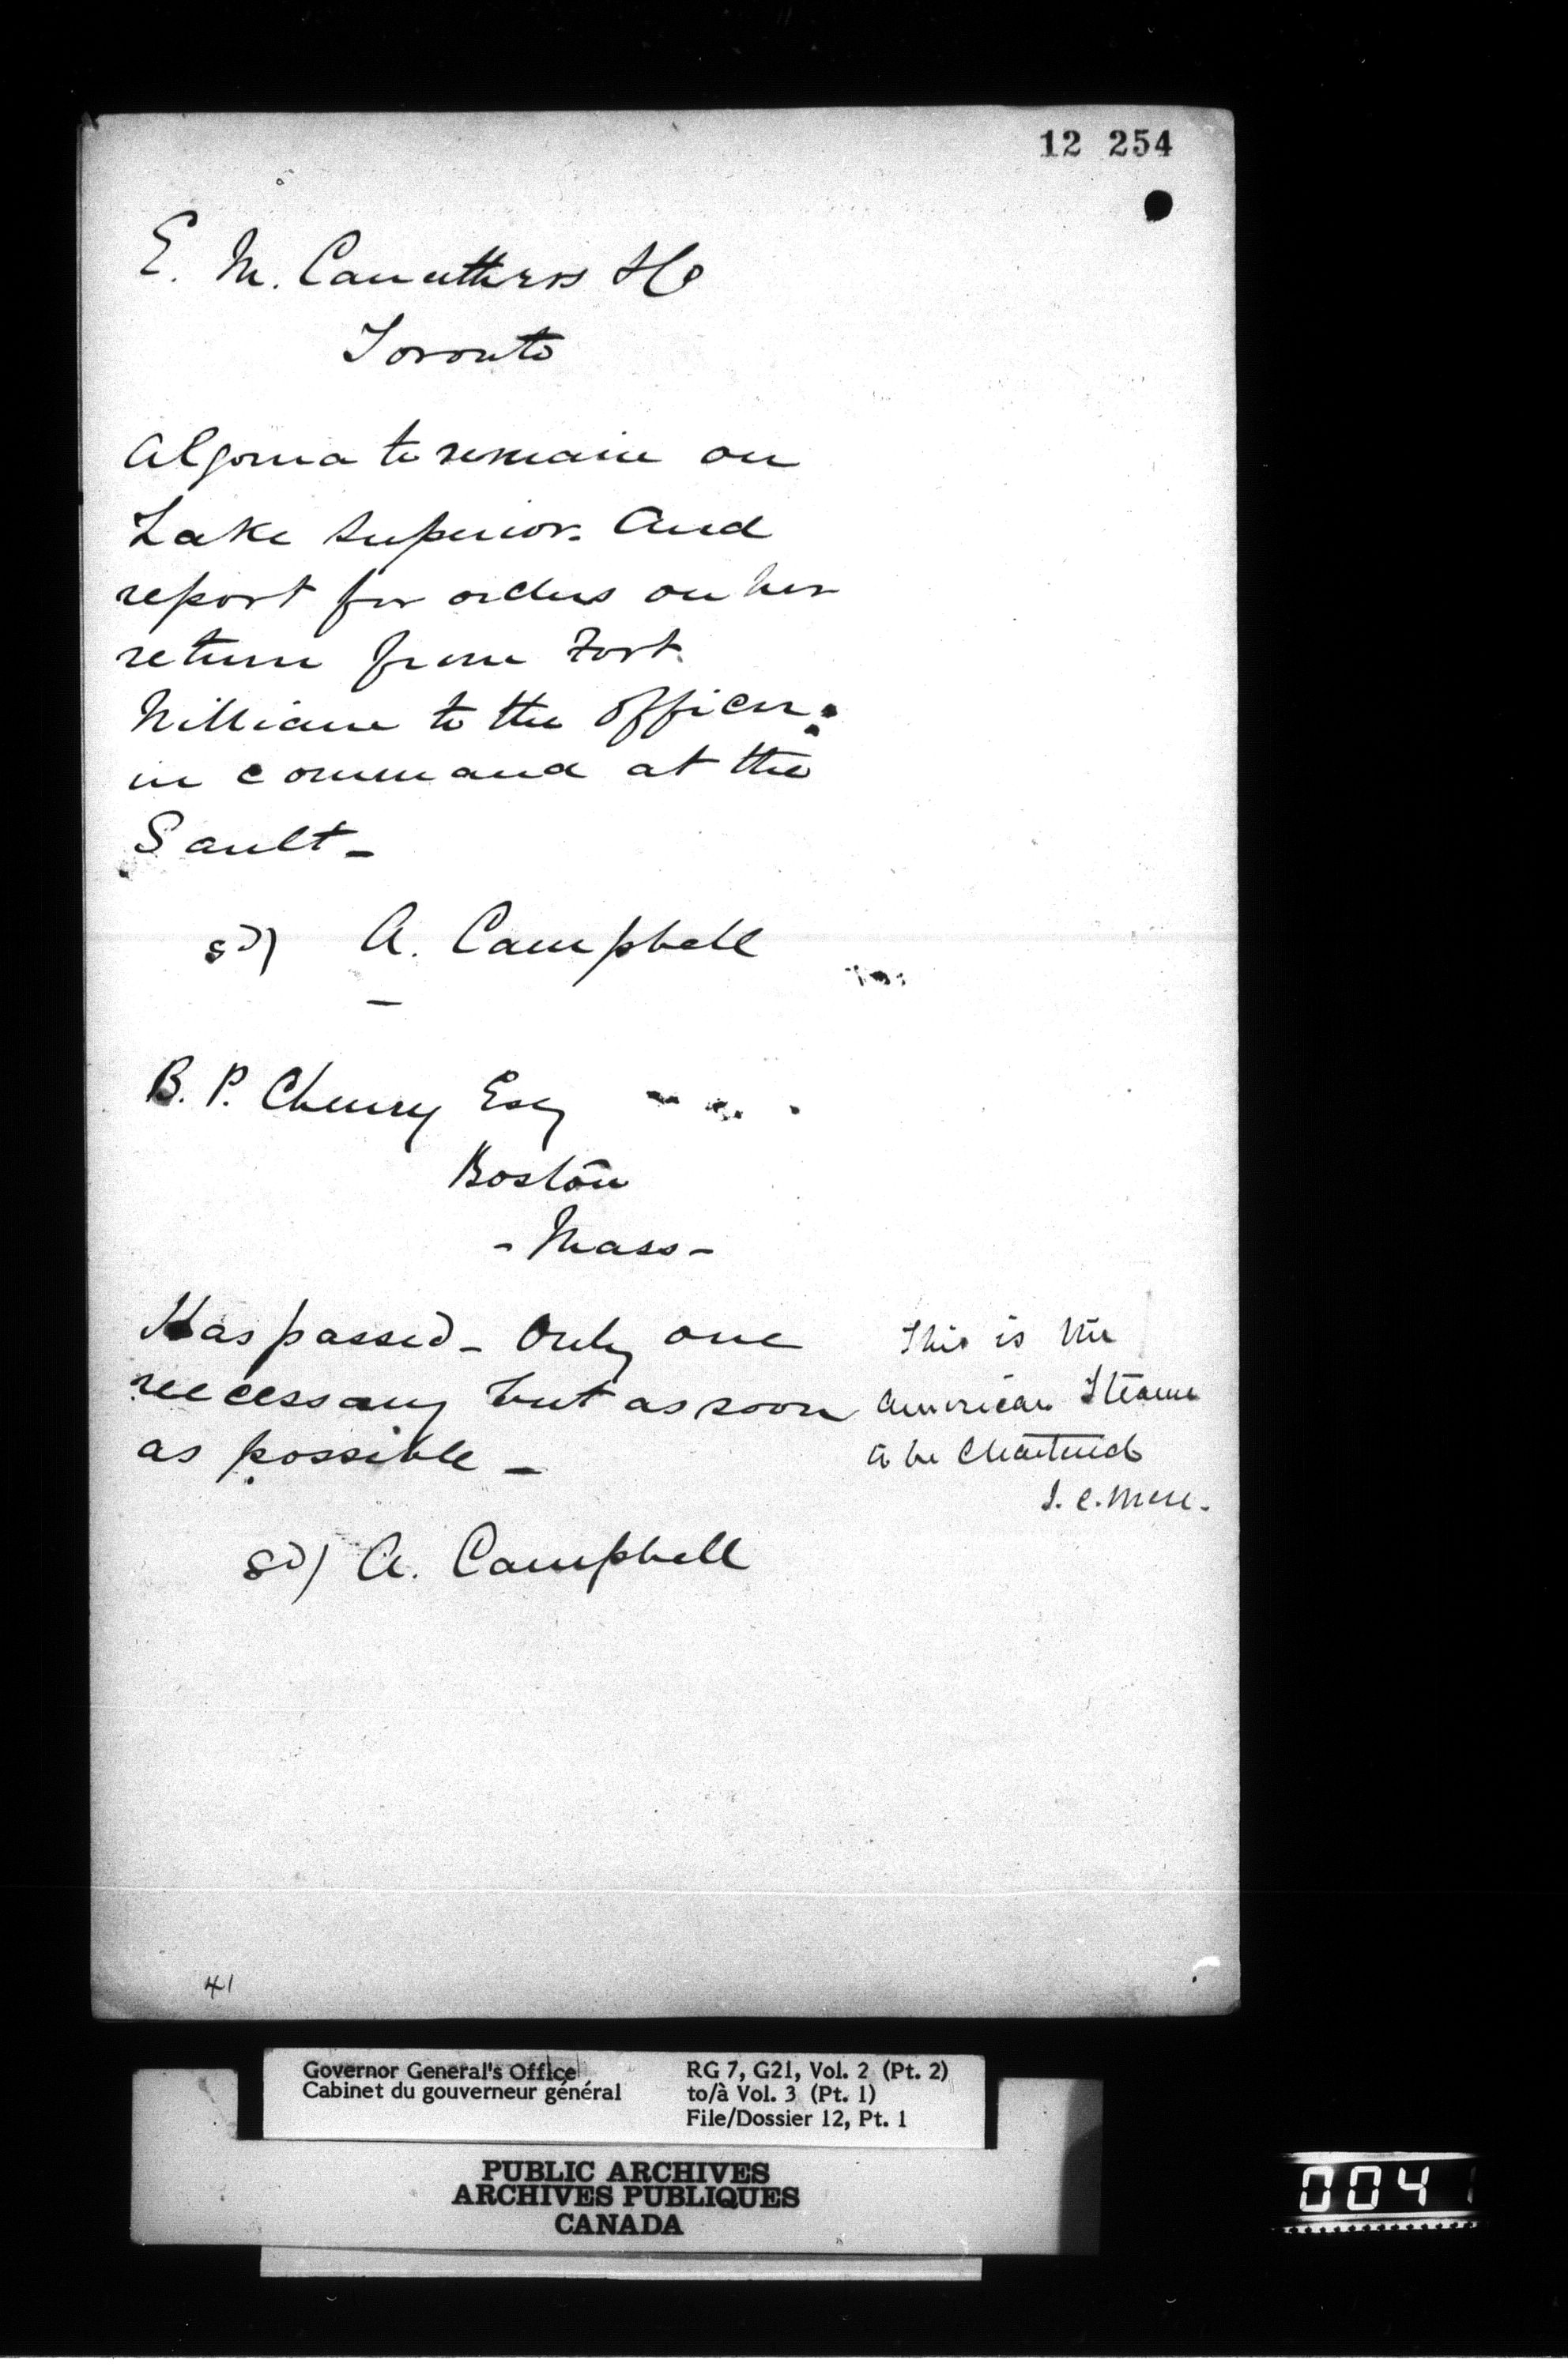 12 254
E. M. Carruthers
Toronto
Algoma to remain on
Lake Superior. And
report for orders on her
return from Fort
William to the Officer
in command at the
Sault -
sd) A. Campbell
B. P. Cheney Esq
Boston
- Mass -
Has passed - Only one
necessary but as soon
as possible -
sd) A. Campbell
This is the
American Steamer
to be Chartered
41
Governor General's Office
Cabinet du gouverneur général
RG 7, G21, Vol. 2 (Pt. 2)
to/à Vol. 3 (Pt. 1)
File/Dossier 12, Pt. 1
PUBLIC ARCHIVES
ARCHIVES PUBLIQUES
CANADA
0041